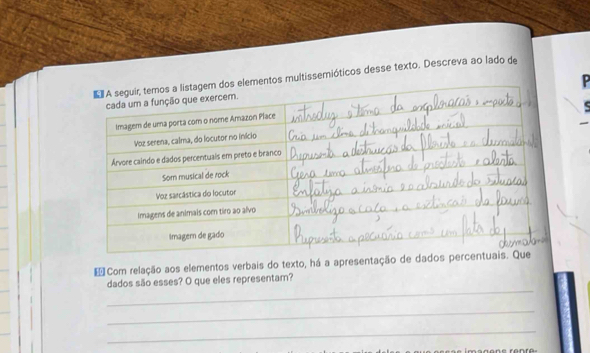 9 A seguir, temos a listagem dos elementos multissemióticos desse texto. Descreva ao lado de
cada um a função que exercem.
Imagem de uma porta com o nome Amazon Place introduz o tema da exploração
Voz serena, calma, do locutor no início Cria um clima de tranquilidade inicial
Árvore caindo e dados percentuais em preto e branco Representa a destruição da floresta e o
Som musical de rock Gera uma atmosfera de protesto e alerta
Voz sarcástica do locutor Enfatiza a ironia e o absurdo da situação
Imagens de animais com tiro ao alvo Simboliza a caça e a extinção da fauna
Imagem de gado Representa a pecuária como um fator de
10 Com relação aos elementos verbais do texto, há a apresentação de dados percentuais. Que
dados são esses? O que eles representam?